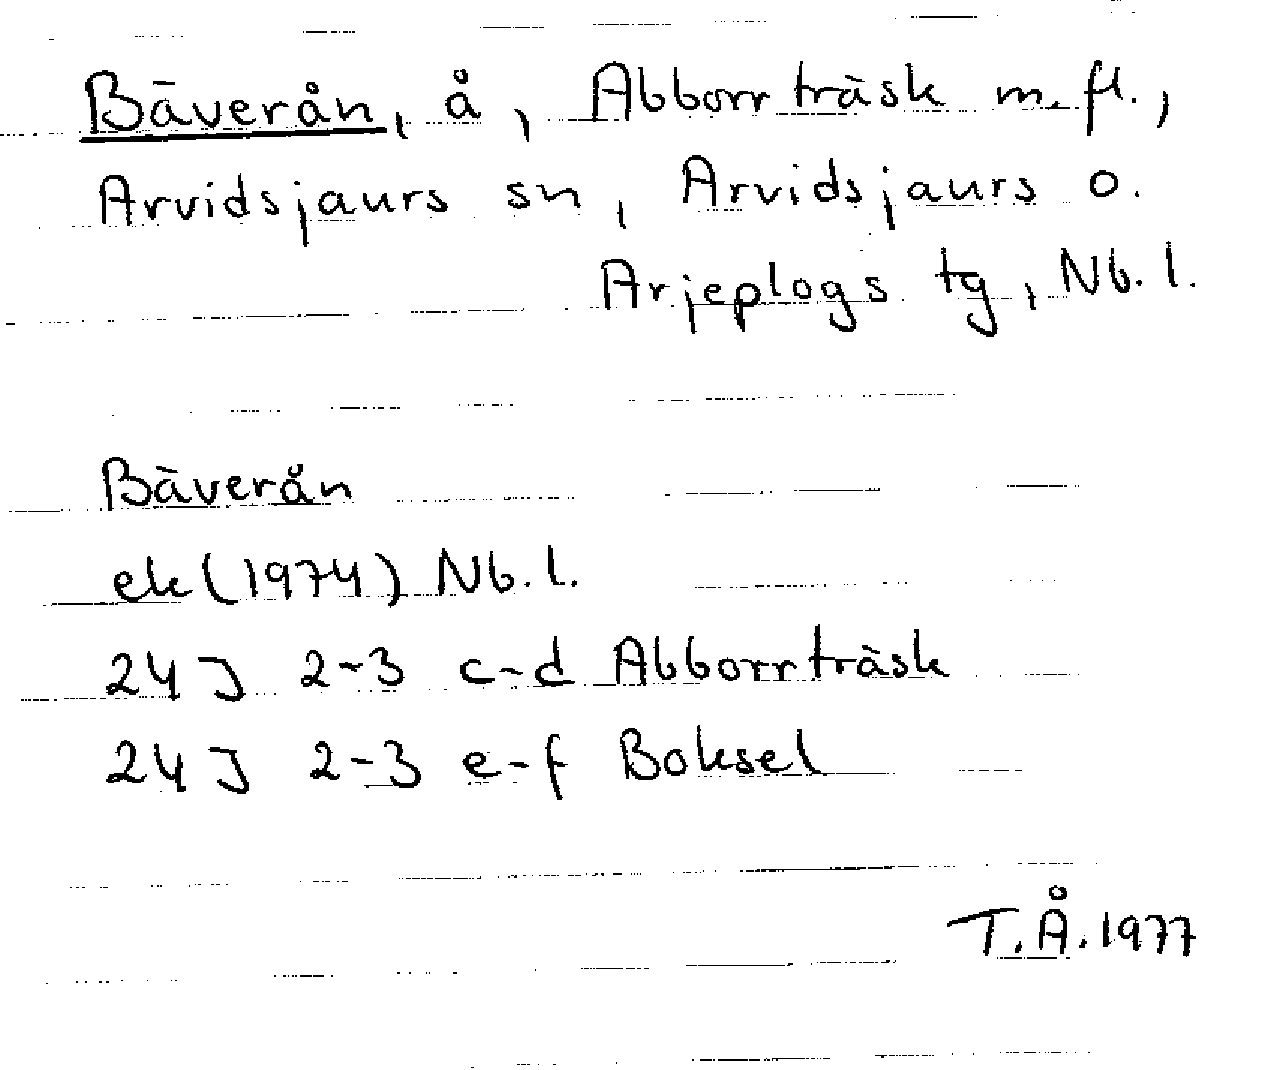 Bäverån, å, Abborrträsk m.fl.,
Arvidsjaurs sn, Arvidsjaurs o.
Arjeplogs tg, Nb.l.
Bäverån
ek (1974) Nb.l.
24J 2-3 c-d Abborrträsk
24J 2-3 e-f Boksel
T.Å.1977